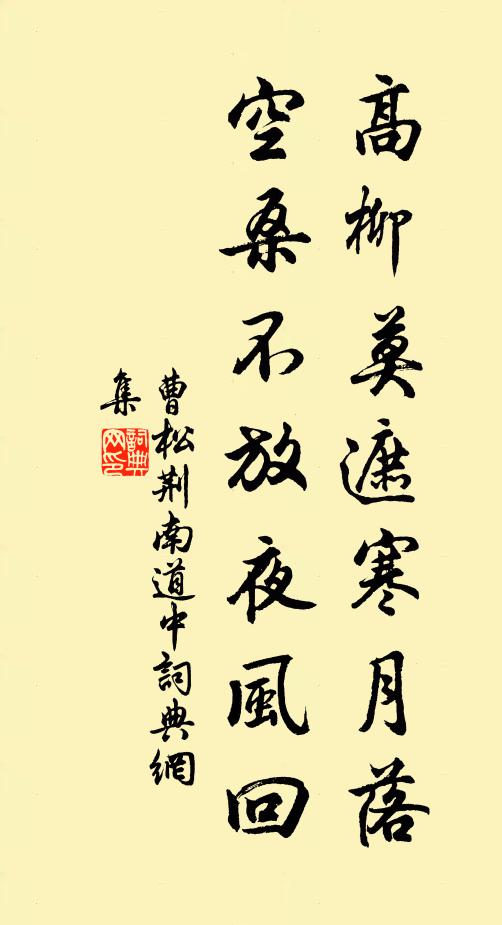 高柳莫遮寒月落
空桑不放夜風回
曹松荆南道中詞典網
集
詞典
网印